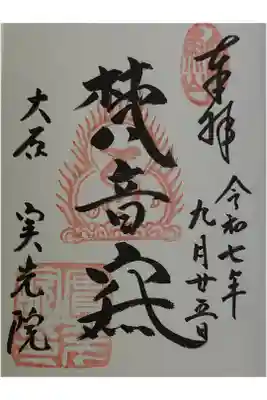 奉拝
令和七年
九月廿五日
梵音
大原 実光院